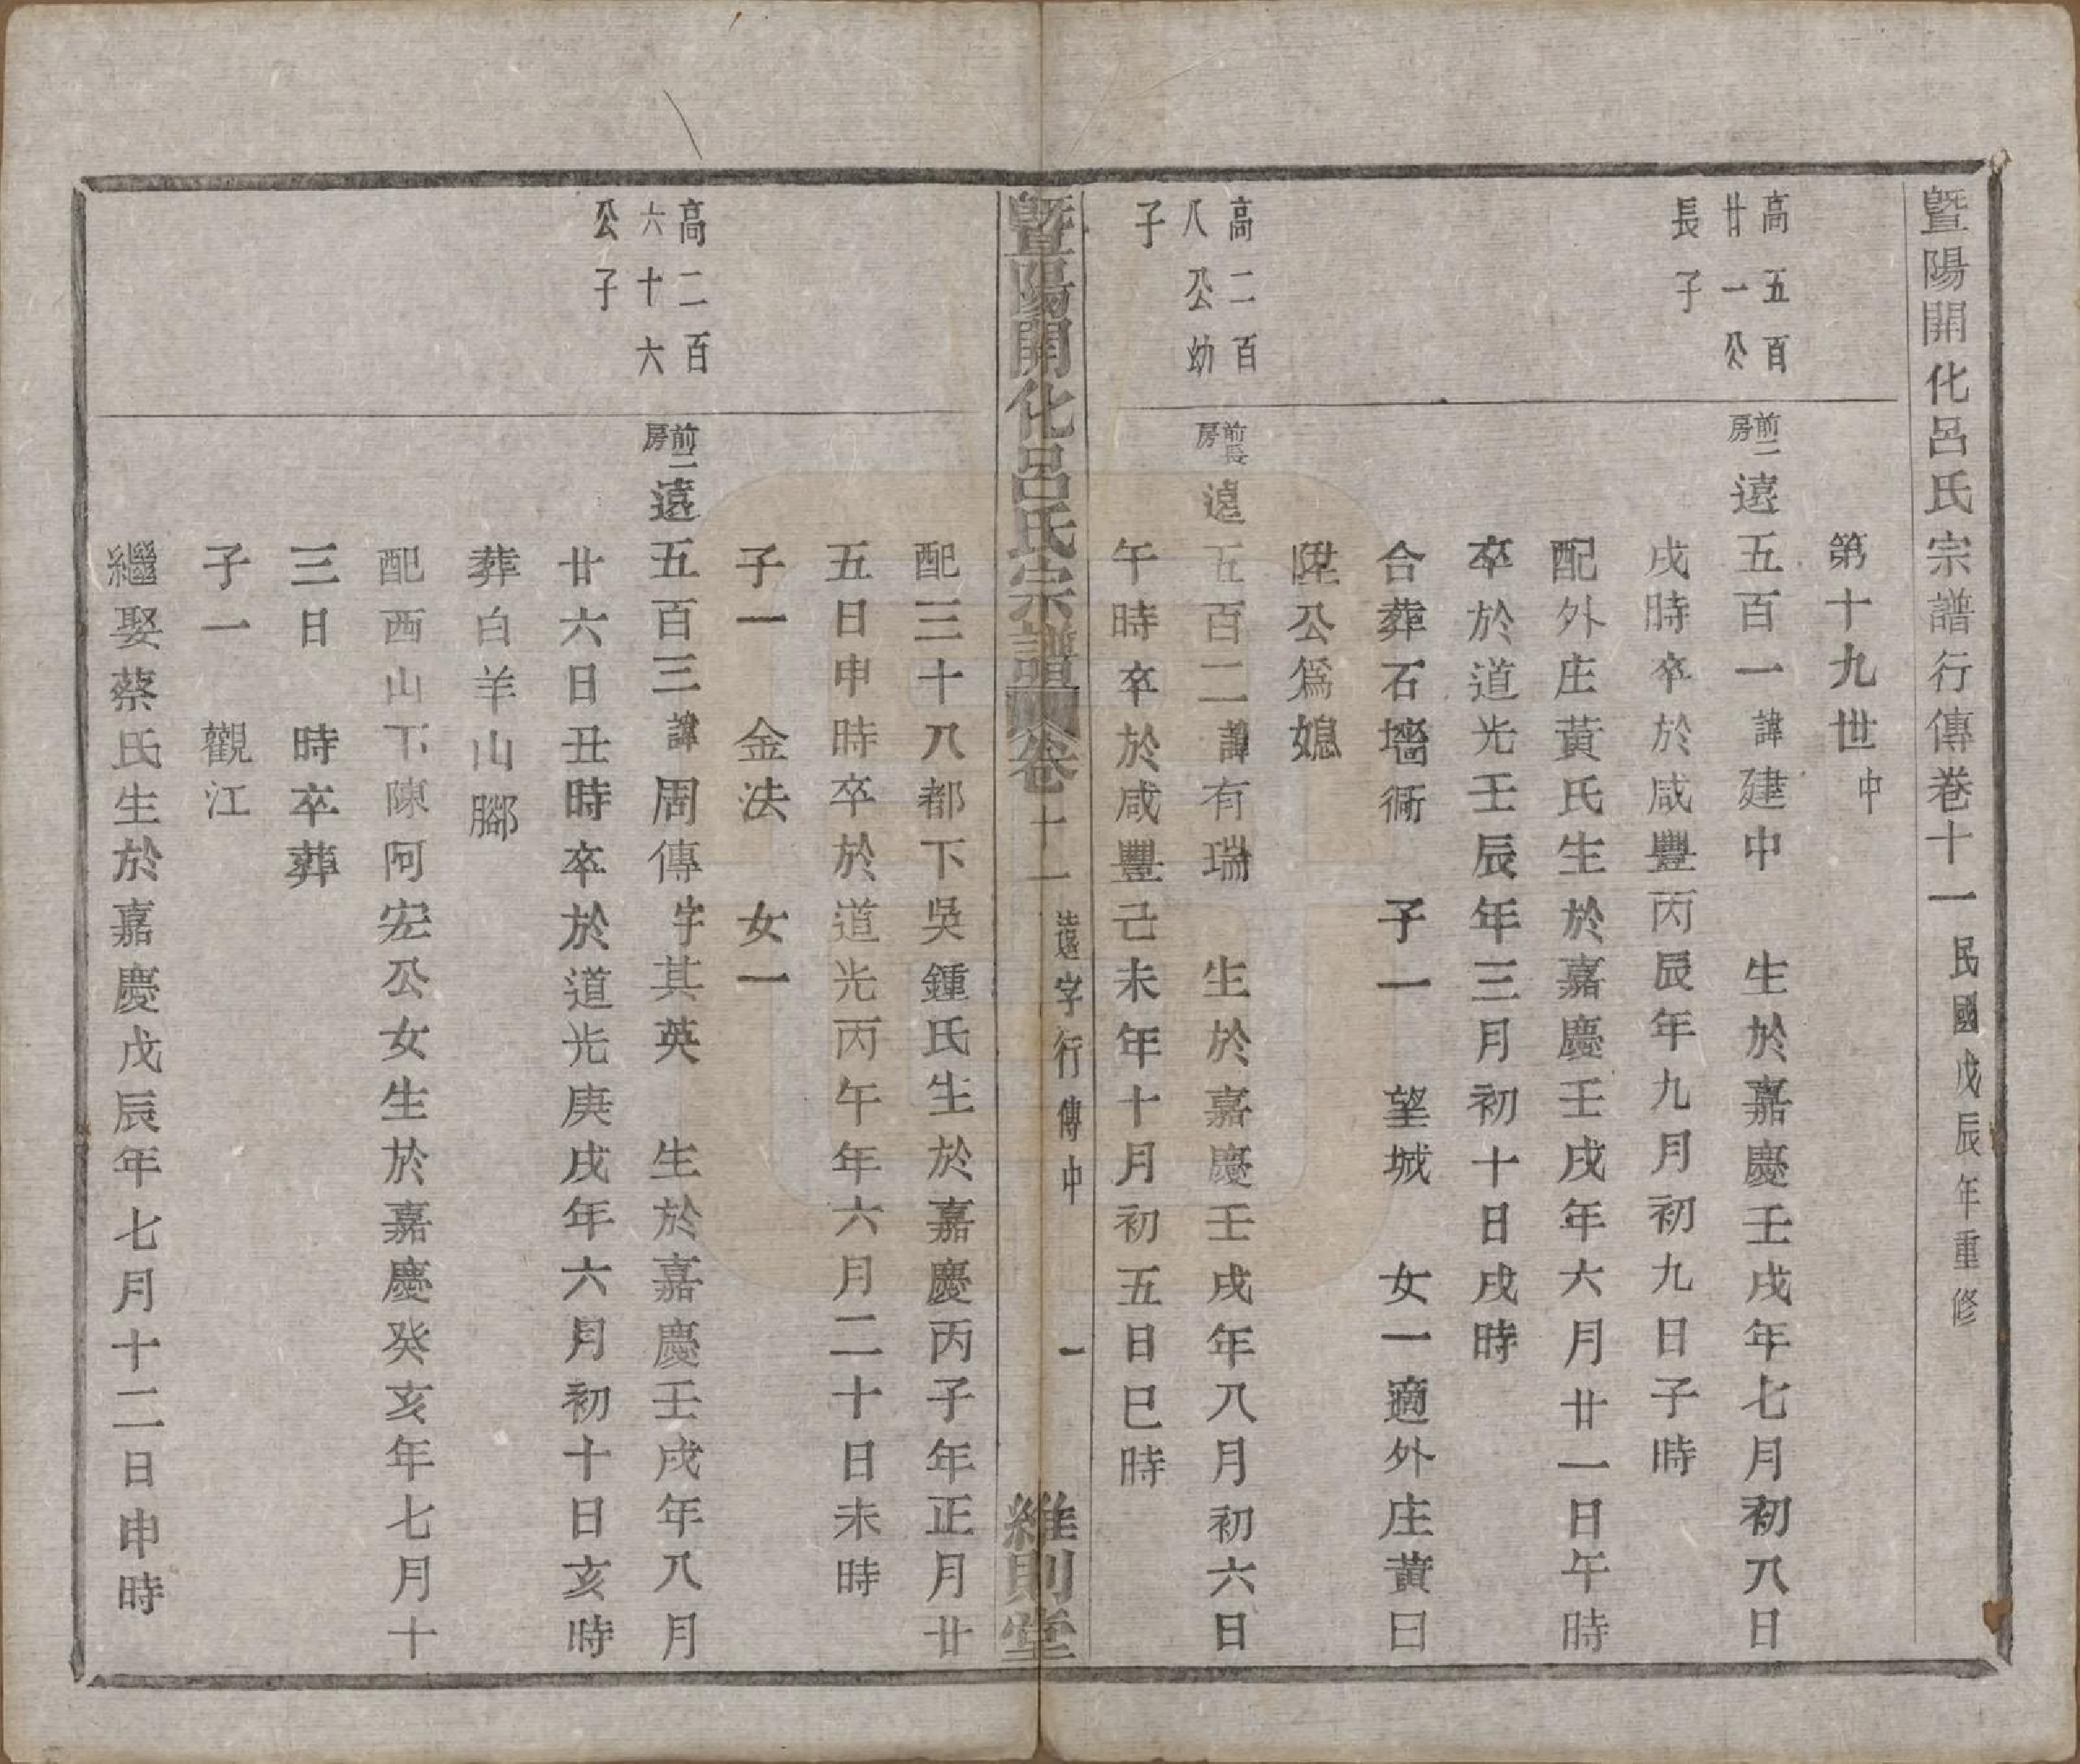 暨陽開化呂氏宗譜行傳卷十一民國戊辰年重修
第十九世中
高五百
廿一公
長子
前二房遠五百一諱建中　生於嘉慶壬戌年七月初八日
戌時卒於咸豐丙辰年九月初九日子時
配外庄黃氏生於嘉慶壬戌年六月廿一日午時
卒於道光壬辰年三月初十日戌時
合葬石墻衕　子一　望城　女一適外庄黃日
陞公爲媳
高二百
八公幼
子
前長房遠五百二諱有瑞　生於嘉慶壬戌年八月初六日
午時卒於咸豐己未年十月初五日巳時
暨陽開化呂氏宗譜卷十一遠字行傳中　一　維則堂
配三十八都下吳鍾氏生於嘉慶丙子年正月廿
五日申時卒於道光丙午年六月二十日未時
子一　金法　女一
高二百
六十六
公子
前二房遠五百三諱周傳字其英　生於嘉慶壬戌年八月
廿六日丑時卒於道光庚戌年六月初十日亥時
葬白羊山腳
配西山下陳阿宏公女生於嘉慶癸亥年七月十
三日　時卒葬
子一　觀江
繼娶蔡氏生於嘉慶戊辰年七月十二日申時